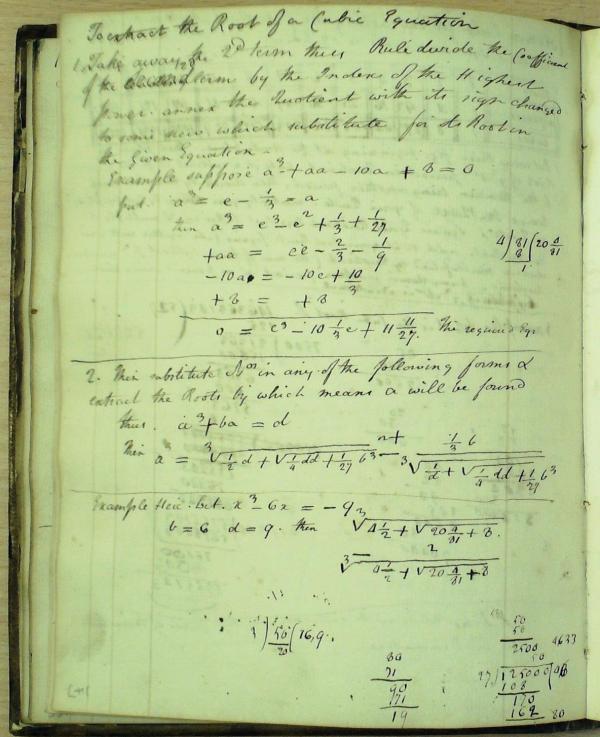 To extract the Root of a Cubic Equation
1. Take away the 2d term thus Rule divide the Coefficient
of the term by the Index of the Highest
Power annex the Quotient with its sign changed
to some new which substitute for its Root in
the given Equation -
Example suppose a³ + aa - 10a + 8 = 0
put. a = e - 1/3 = a
then a³ = e³ - e² + 1/3 + 1/27
+aa = ee - 2/3 - 1/9
4)81(20 4/81
8
1
-10a = -10e + 10/3
+8 = +8
0 = e³ - 10 1/3 e + 11 11/27. The required Eqn
2. Then substitute Nos in any of the following forms &
extract the Roots by which means a will be found
thus. a³ + ba = d
Then a = ³√ 1/2 d + √ 1/4 dd + 1/27 b³ - 1/3 b / ³√ 1/d + √ 1/4 dd + 1/27 b³
Example let. x³ - 6x = -9
b = 6 d = 9. then ³√ 4 1/2 + √ 20 4/81 + 8.
2
³√ 4 1/2 + √ 20 4/81 + 8
3)50(16,9.
20
80
71
90
71
19
50
50
2500 4633
50
27)125000(06
108
170
162 80